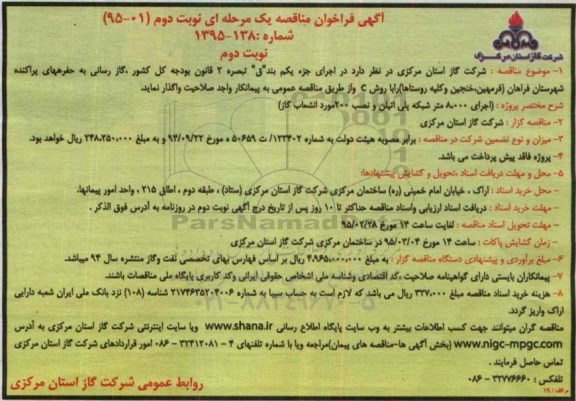 آگهی فراخوان مناقصه یک مرحله ای نوبت دوم (۰۱-۹۵)
شماره :۱۳۸-۱۳۹۵
نوبت دوم
شرکت گاز استان مرکزی
۱- موضوع مناقصه : شرکت گاز استان مرکزی در نظر دارد در اجرای جزء یکم بند"ق" تبصره ۲ قانون بودجه کل کشور ،گاز رسانی به حفرههای پراکنده
شهرستان فراهان (فرمهین،خنجین وکلیه روستاها)رابا روش C واز طریق مناقصه عمومی به پیمانکار واجد صلاحیت واگذار نماید.
شرح مختصر پروژه : (اجرای ۸،۰۰۰ متر شبکه پلی اتیلن و نصب ۲۰۰مورد انشعاب گاز)
۲- مناقصه گزار : شرکت گاز استان مرکزی
۳- میزان و نوع تضمین شرکت در مناقصه : برابر مصوبه هیئت دولت به شماره ۱۲۳۴۰۲/ ت ۵۰۶۵۹ ه مورخ ۹۴/۰۹/۲۲ و به مبلغ ۲۴۸،۲۵۰،۰۰۰ ریال خواهد بود.
۴- پروژه فاقد پیش پرداخت می باشد.
۵- محل و مهلت دریافت اسناد ،تحویل و گشایش پیشنهادها:
- محل خرید اسناد : اراک ، خیابان امام خمینی (ره) ساختمان مرکزی شرکت گاز استان مرکزی (ستاد) ، طبقه دوم ، اطاق ۲۱۵ ، واحد امور پیمانها.
- مهلت خرید اسناد : دریافت اسناد ارزیابی واسناد مناقصه حداکثر تا ۱۰ روز پس از تاریخ درج آگهی نوبت دوم در روزنامه به آدرس فوق الذکر .
- مهلت تحویل اسناد مناقصه : لغایت ساعت ۱۴ مورخ ۹۵/۰۲/۲۸
- زمان گشایش پاکات : ساعت ۱۴ مورخ ۹۵/۰۳/۰۴ در ساختمان مرکزی شرکت گاز استان مرکزی
۶- مبلغ برآوردی و پیشنهادی دستگاه مناقصه گزار : به مبلغ ۴،۹۶۵،۰۰۰،۰۰۰ ریال بر اساس فهارس بهای تخصصی نفت وگاز منتشره سال ۹۴ میباشد.
۷- پیمانکاران بایستی دارای گواهینامه صلاحیت ،کد اقتصادی وشناسه ملی اشخاص حقوقی ایرانی وکد کاربری پایگاه ملی مناقصات باشند.
۸- هزینه خرید اسناد مناقصه مبلغ ۳۲۷،۰۰۰ ریال می باشد که لازم است به حساب سیبا به شماره ۲۱۷۴۶۳۵۲۰۴۰۰۶ شناسه (۱۰۸) نزد بانک ملی ایران شعبه دارایی
اراک واریز گردد.
مناقصه گران میتوانند جهت کسب اطلاعات بیشتر به وب سایت پایگاه اطلاع رسانی www.shana.ir ویا سایت اینترنتی شرکت گاز استان مرکزی به آدرس
www.nigc-mpgc.com (بخش آگهی ها-مناقصه های پیمان)مراجعه ویا با شماره تلفنهای ۴ - ۳۲۴۱۲۰۸۱ - ۰۸۶ امور قراردادهای شرکت گاز استان مرکزی
تماس حاصل فرمایند .
تلفکس : ۳۲۷۷۶۶۶۰ - ۰۸۶
روابط عمومی شرکت گاز استان مرکزی
ParsNamadData